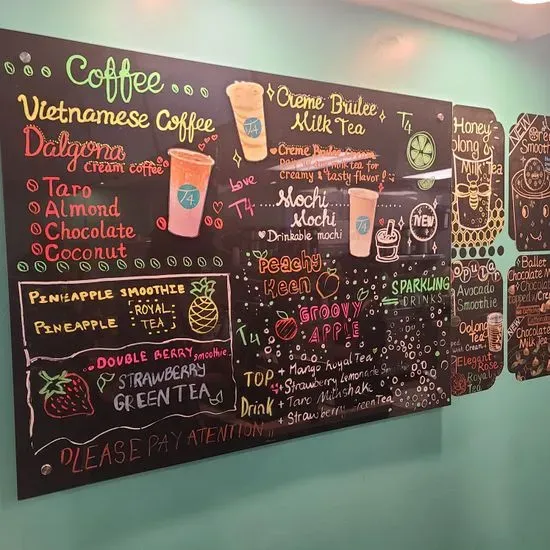 Coffee
Vietnamese Coffee
Dalgona
cream coffee
Taro
Almond
Chocolate
Coconut
PINEAPPLE SMOOTHIE
PINEAPPLE
ROYAL
TEA
DOUBLE BERRY smoothie
STRAWBERRY
GREEN TEA
PLEASE PAY ATENTION!!
T4
Love
T4
Creme Brulee
Milk Tea
Creme Brulee Cream
milk tea for
creamy & tasty flavor!
T4
Mochi
Mochi
Drinkable mochi
T4
NEW
T4
Peachy
Keen
GROOVY
APPLE
SPARKLING
DRINKS
T4
TOP
Drink
+ Mango Royal Tea
+ Strawberry Lemonade
+ Taro Milkshake
+ Strawberry Green Tea
Honey
olong
Milk Tea
Avocado
Smoothie
Oolong
Tea
Elegant
Rose
Royal
Tea
NEW
Smooth
Ballet
Chocolate
NEW
Chocolate
Milk Tea